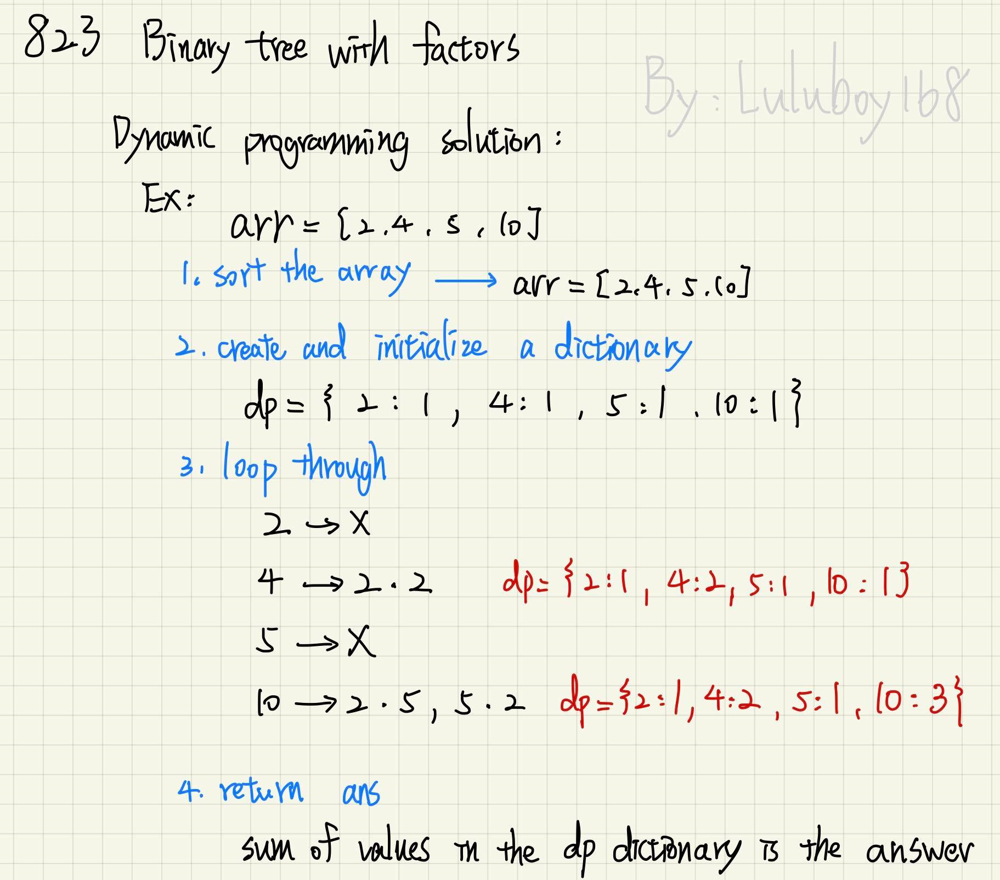 823 Binary tree with factors
By: Luluboy168
Dynamic programming solution:
Ex:
arr = [2.4.5,10]
1. sort the array → arr = [2.4.5.10]
2. create and initialize a dictionary
dp = { 2:1, 4:1, 5:1, 10:1}
3. loop through
2 → X
4 → 2·2 dp={2:1, 4:2, 5:1, 10:1}
5 → X
10 → 2·5, 5·2 dp={2:1, 4:2, 5:1, 10:3}
4. return ans
sum of values in the dp dictionary is the answer